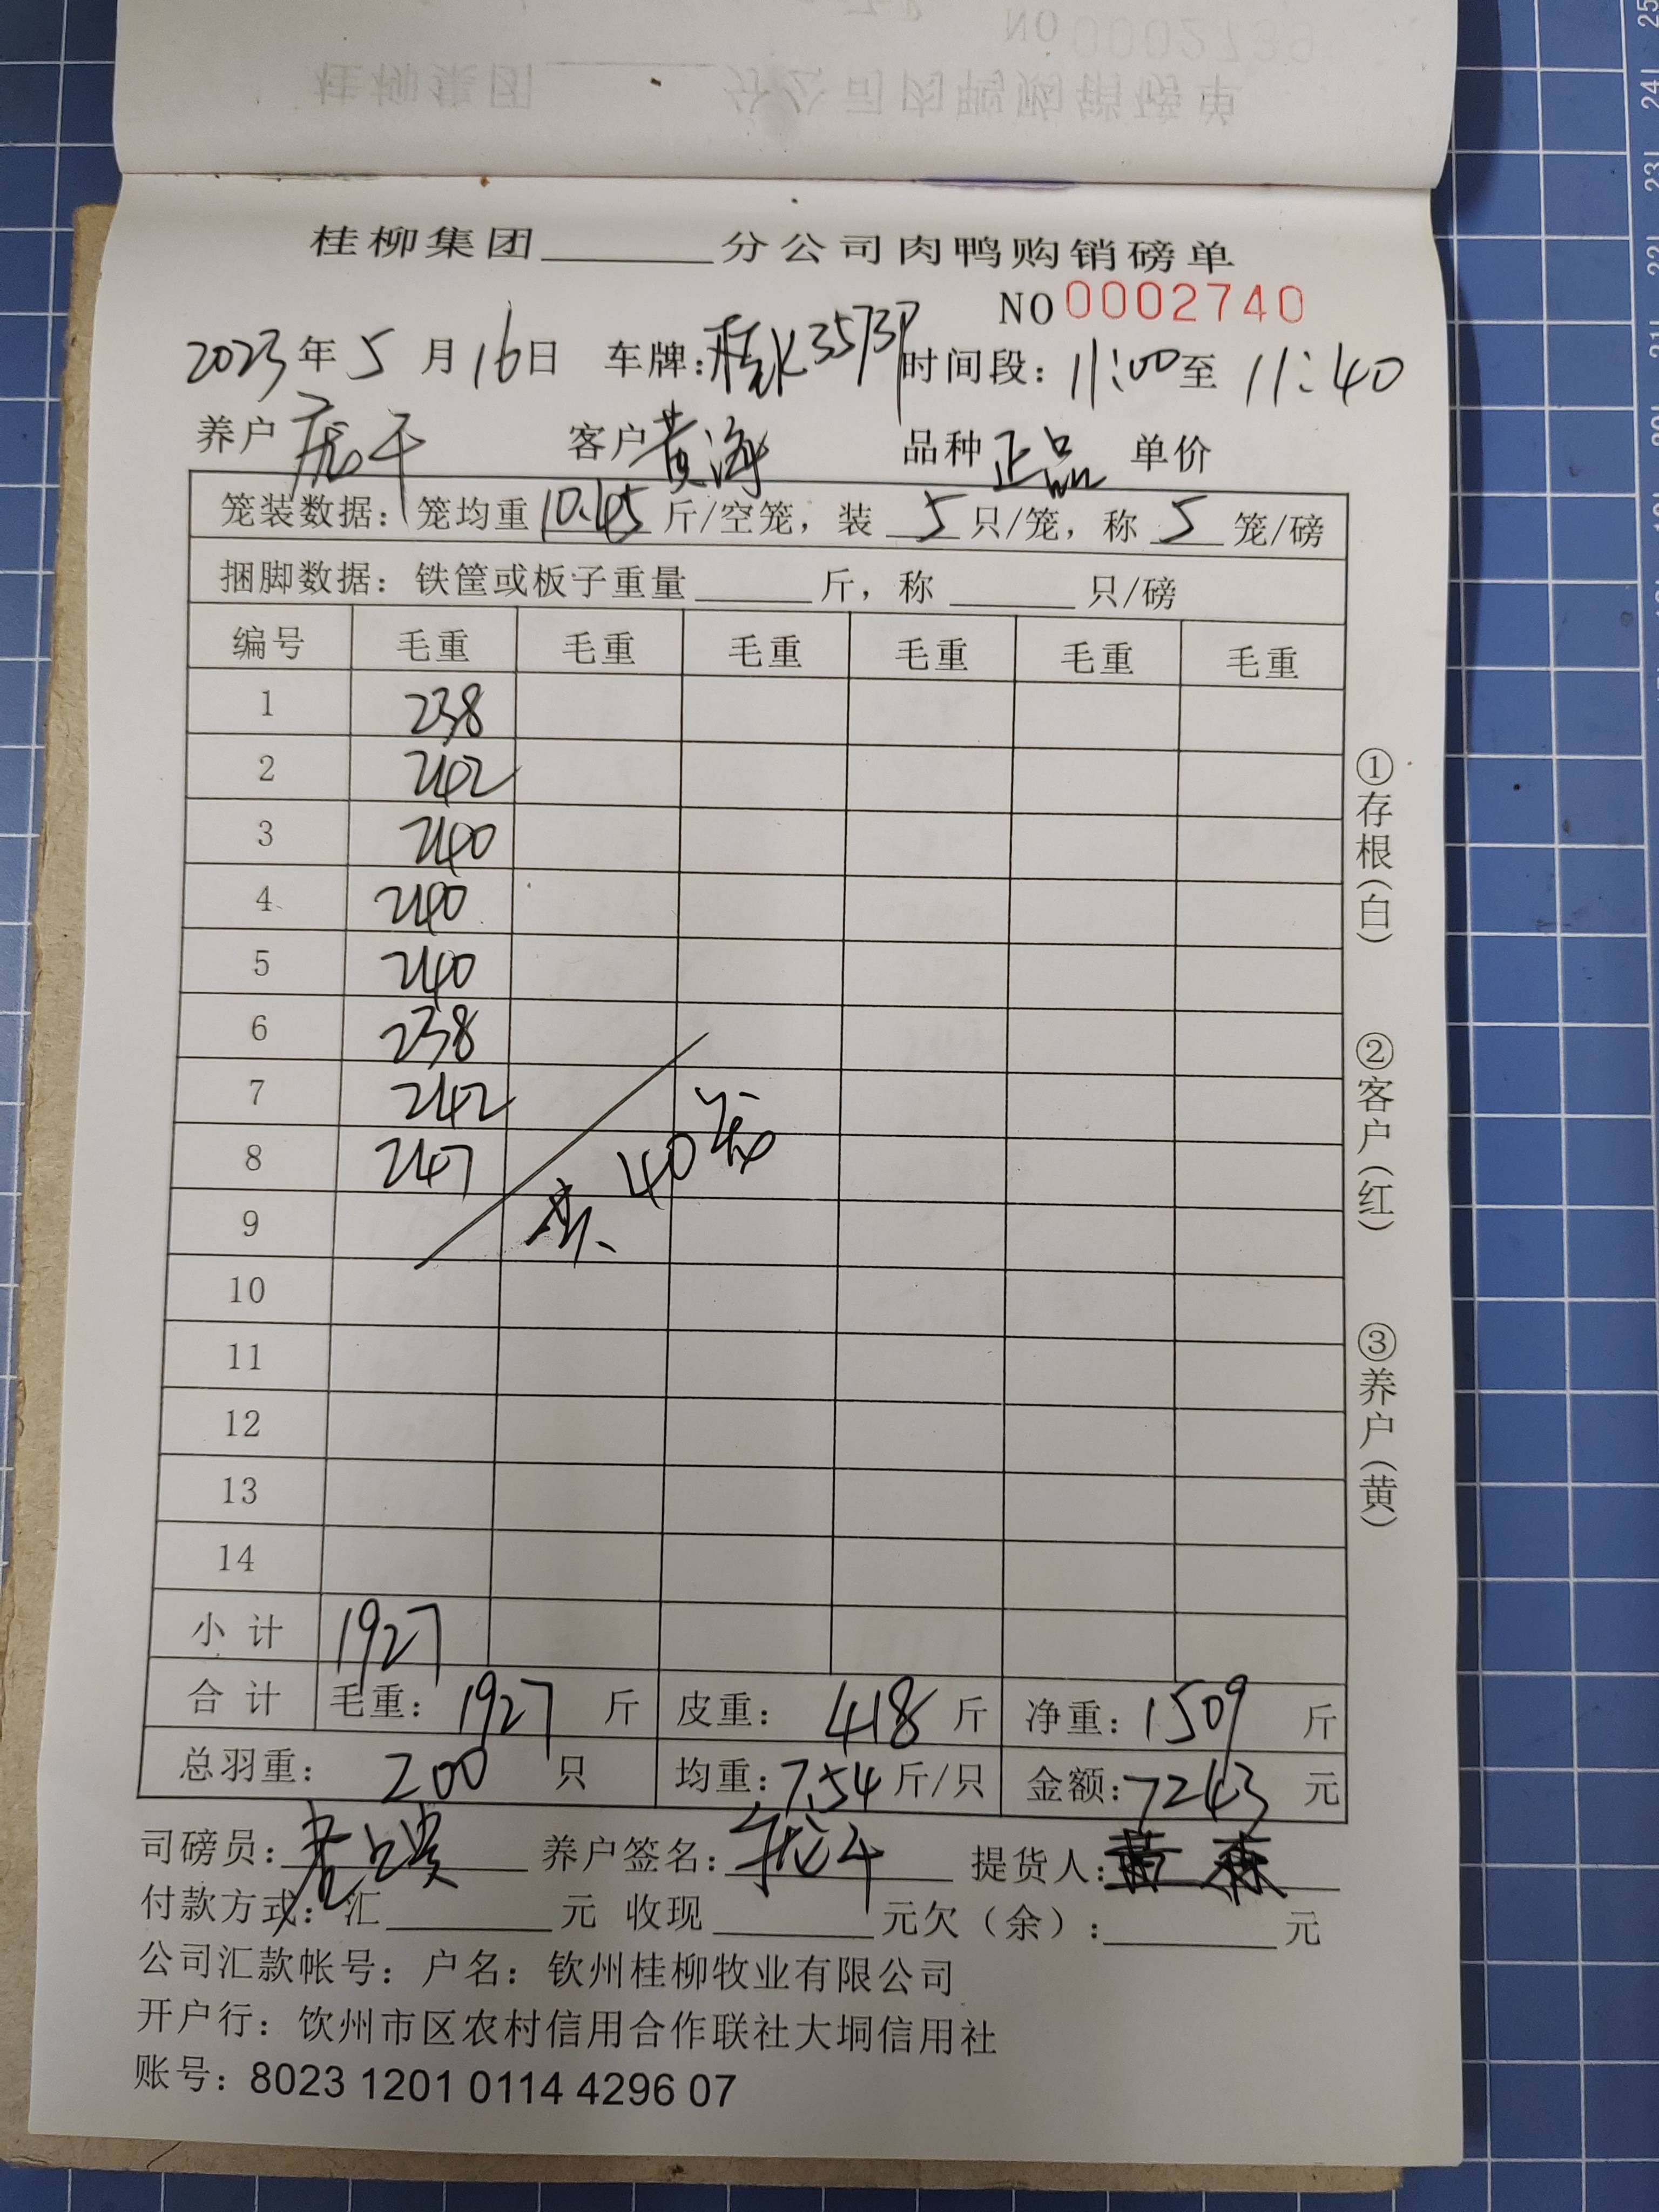 桂柳集团______分公司肉鸭购销磅单
NO 0002740
2023年5月16日 车牌:桂K3573P 时间段:11:00至11:40
养户 庞千 客户 黄海 品种 正品 单价
笼装数据:笼均重10.45斤/空笼,装5只/笼,称5笼/磅
捆脚数据:铁筐或板子重量______斤,称______只/磅
编号 毛重 毛重 毛重 毛重 毛重 毛重
1 238
2 242
3 240
4 240
5 240
6 238
7 242
8 247
9
共40笼
10
11
12
13
14
小计 1927
合计 毛重:1927斤 皮重:418斤 净重:1509斤
总羽重:200只 均重:7.54斤/只 金额:7243元
司磅员: 养户签名: 提货人:黄森
付款方式:汇______元 收现______元欠(余):______元
公司汇款帐号:户名:钦州桂柳牧业有限公司
开户行:饮州市区农村信用合作联社大垌信用社
账号:8023 1201 0114 4296 07
①存根(白)
②客户(红)
③养户(黄)